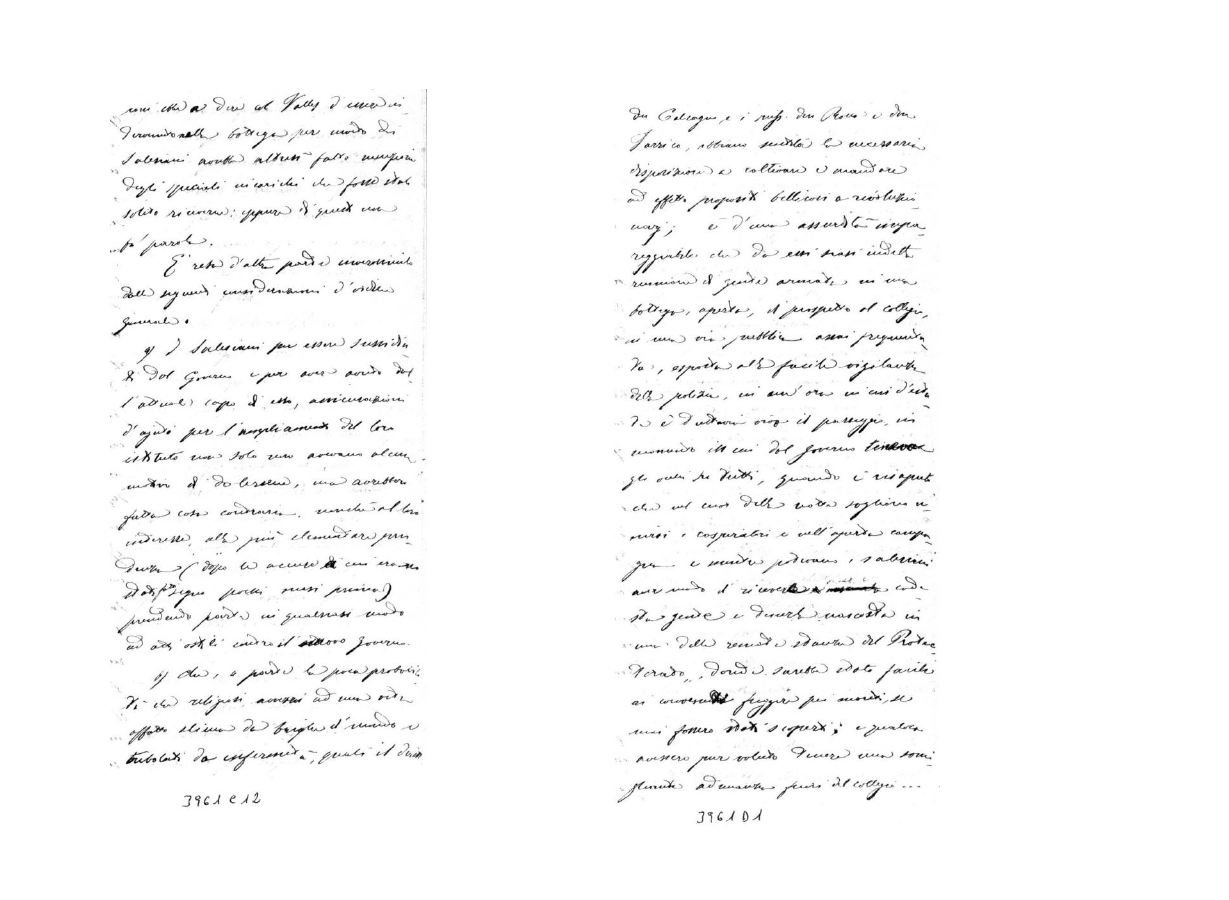 a dire al Valles d'essere in
nella bottega per modo dei
Salesiani avrebbe altresì fatto menzione
degli speciali incarichi che fosse stato
solito ricevere; eppure di questi non
fa parola.
È reso d'altra parte inverosimile
dalle seguenti considerazioni d'ordine
generale.
a) I Salesiani per essere sussidia
ti dal Governo e per aver avuto dal
l'attuale capo di esso, assicurazioni
d'ajuto per l'ampliamento del loro
istituto non solo non avevano alcun
motivo di dolersene, ma avrebbero
fatto cosa contraria, nonché al loro
interesse, alla più elementare pru
denza (dopo le accuse di cui erano
stati fatti segno pochi mesi prima)
prendendo parte in qualsiasi modo
ad atti ostili contro il nuovo Governo.
b) Che, a parte la poca probabili
tà che religiosi avvezzi ad una vita
affatto aliena da brighe di mondo e
tribolati da infermità, quali il dire
don Calcagno, e i don e don
, abbiano la necessaria
disposizione a coltivare e mandare
ad effetto propositi bellicosi o rivoluzio
narj; è d'una assurdità impa
reggiabile che da essi siasi indetta
riunione di gente armata in una
bottega, aperta, di prospetto al collegio,
in una via pubblica assai frequenta
ta, esposta alla facile vigilanza
della polizia, in un'ora in cui d'esta
te è d'attorni vivo il passeggio, in
momento in cui dal governo
gli occhi su tutti, quando è risaputo
che nel cuor della notte sogliono u
nirsi i cospiratori e nell'aperta campa
gna e mentre potevano i salesiani
aver modo di ricevere code
sta gente e tenerla nascosta in
una delle remote stanze del
, donde sarebbe stato facile
ai convenuti fuggire pei monti, se
mai fossero stati scoperti; e qualora
avessero pur voluto tenere una somi
gliante adunanza fuori del collegio...
3961 C 12
3961 D1